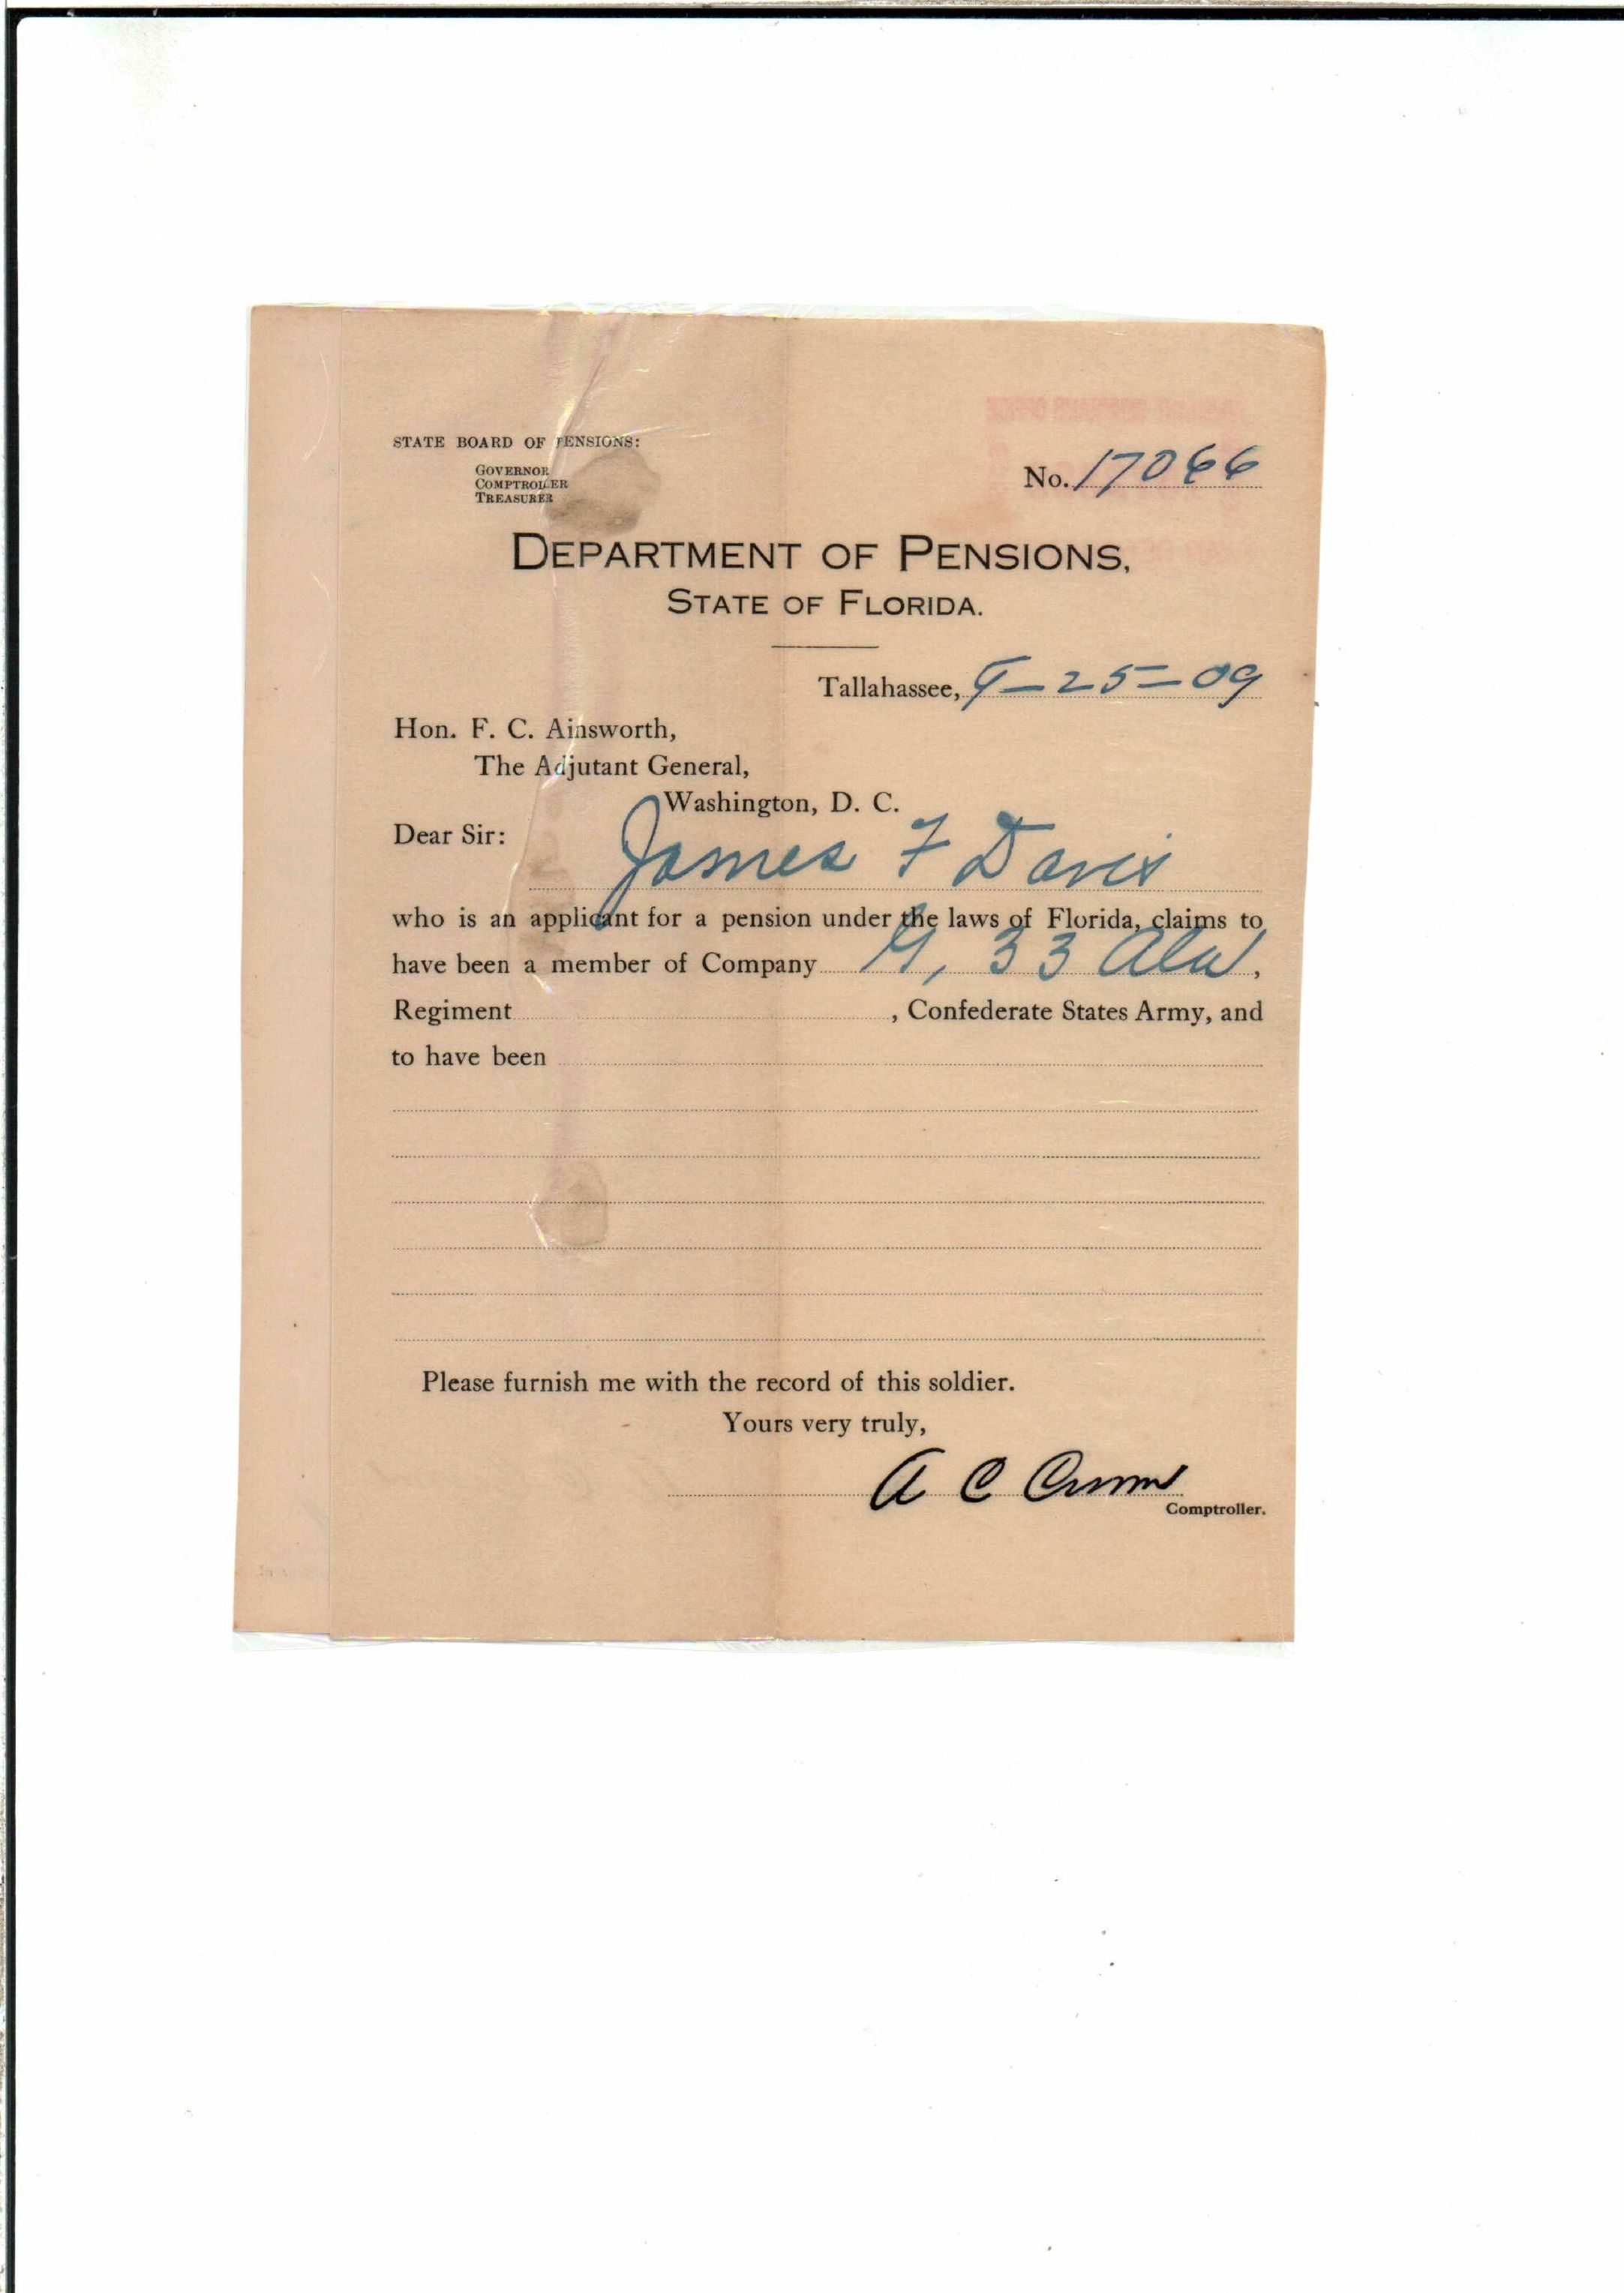 STATE BOARD OF PENSIONS:
GOVERNOR
COMPTROLLER
TREASURER
No. 17066
DEPARTMENT OF PENSIONS,
STATE OF FLORIDA.
Tallahassee, 9-25-09
Hon. F. C. Ainsworth,
The Adjutant General,
Washington, D. C.
Dear Sir:
James F Davis
who is an applicant for a pension under the laws of Florida, claims to
have been a member of Company G, 33 Ala,
Regiment , Confederate States Army, and
to have been
Please furnish me with the record of this soldier.
Yours very truly,
A C Croom
Comptroller.